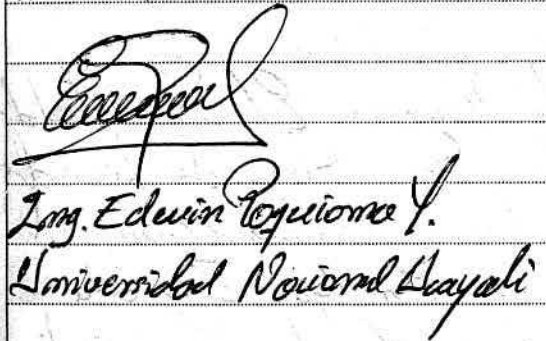 Ing. Edwin Poquioma Y.
Universidad Nacional Ucayali